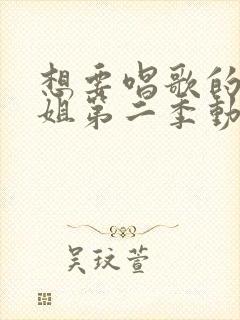 想要唱歌的
姐第二季動
吴玟萱